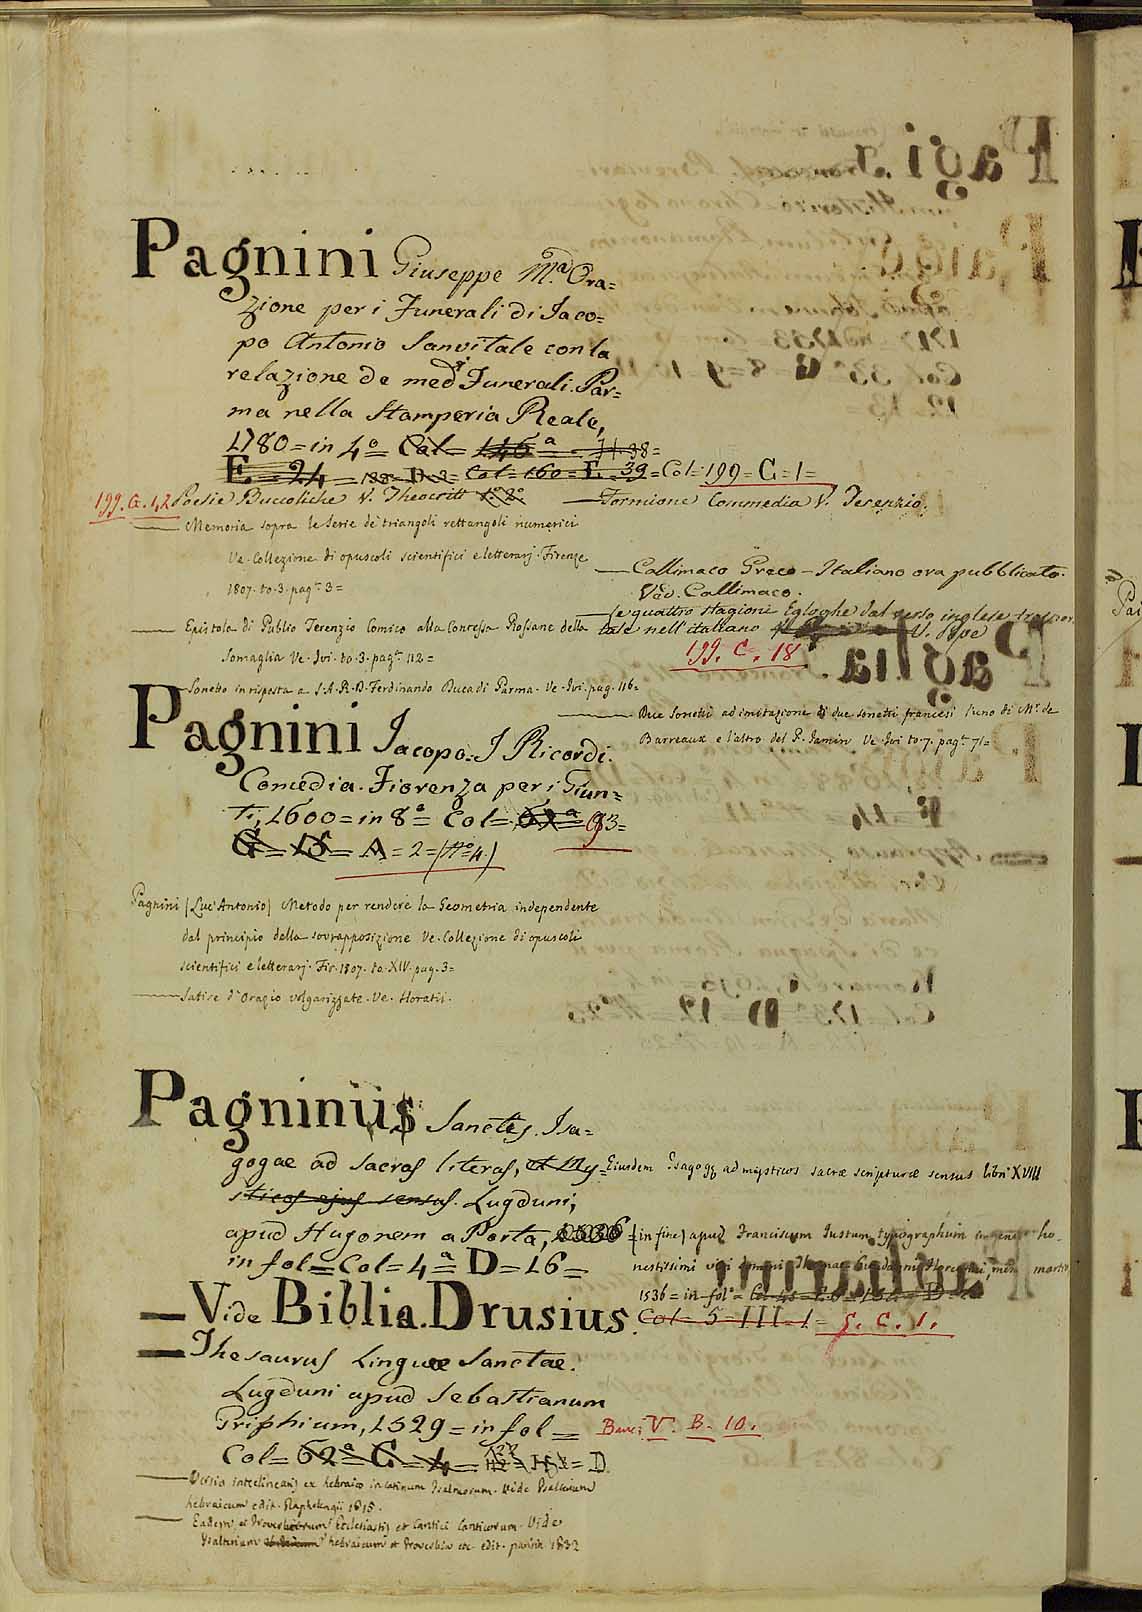 Pagnini Giuseppe M.a Ora=
zione per i Funerali di Jaco=
po Antonio Sanvitale con la
relazione de med.i Funerali. Par=
ma nella Stamperia Reale,
1780 = in 4.o Col = 146.a = 11. 38 =
E = 24 = D = Col = 160 = E. 39 = Col = 199 = G = 1 =
199. G. 1,2 Poesie Buccoliche V. Theocriti — Formione Commedia V. Terenzio.
— Memoria sopra le serie de triangoli rettangoli numerici
Ve. Collezione di opuscoli scientifici e letterarj. Firenze
1807. to. 3. pag.e 3 =
— Callimaco Greco-Italiano ora pubblicato.
Ved. Callimaco.
— Le quattro stagioni Egloghe dal verso inglese traspor.
tate nell'italiano V. Pope
199. C. 18
— Epistola di Publio Terenzio Comico alla Contessa Rossane della
Somaglia Ve. Ivi. to. 3. pag.e 112 =
— Sonetto in risposta a S. A. R. D. Ferdinando Duca di Parma. Ve. Ivi. pag. 116 =
— Due Sonetti ad imitazione di due sonetti francesi l'uno di M.r de
Barreaux e l'altro del P. Jamin Ve. Ivi to. 7. pag.e 71 =
Pagnini Jacopo. I Ricordi.
Comedia. Fiorenza per i Giun=
ti, 1600 = in 8.o = Col = 62.a = 93 =
G = 15 = A = 2 = (N.o 4.)
Pagnini (Luc'Antonio) Metodo per rendere la Geometria independente
dal principio della sovrapposizione Ve. Collezione di opuscoli
scientifici e letterarj. Fir. 1807. to. XIV. pag. 3 =
— Satire d'Orazio volgarizzate. Ve. Horatii.
Pagninus Sanctes. Isa=
gogae ad sacras literas, et My=
sticos ejus sensus. Lugduni,
apud Hugonem a Porta, 1536 =
in fol = Col = 4.a = D = 16 =
Eiusdem Isagogę ad mysticos sacræ scripturæ sensus libri XVIII
(in fine) apud Franciscum Justum typographum ho_
nestissimi viri Domini Thomae Guadagni Florentini, mart.
1536 = in fol.o =
Col = 5 III. 1 = 5. C. 1.
— Vide Biblia. Drusius.
— Thesaurus Linguæ Sanctae.
Lugduni apud Sebastianum
Griphium, 1529 = in fol =
Banc: V. B. 10.
Col = 62.a = C = 4 = = D
— Versio interlinearis ex hebraico in latinum Psalmorum. Vide Psalterium
hebraicum edit. Raphelengii 1615.
— Eadem, et Proverbiorum Ecclesiastis et Cantici Canticorum. Vide
Psalterium hebraicum et Proverbia etc. edit. parisin 1632